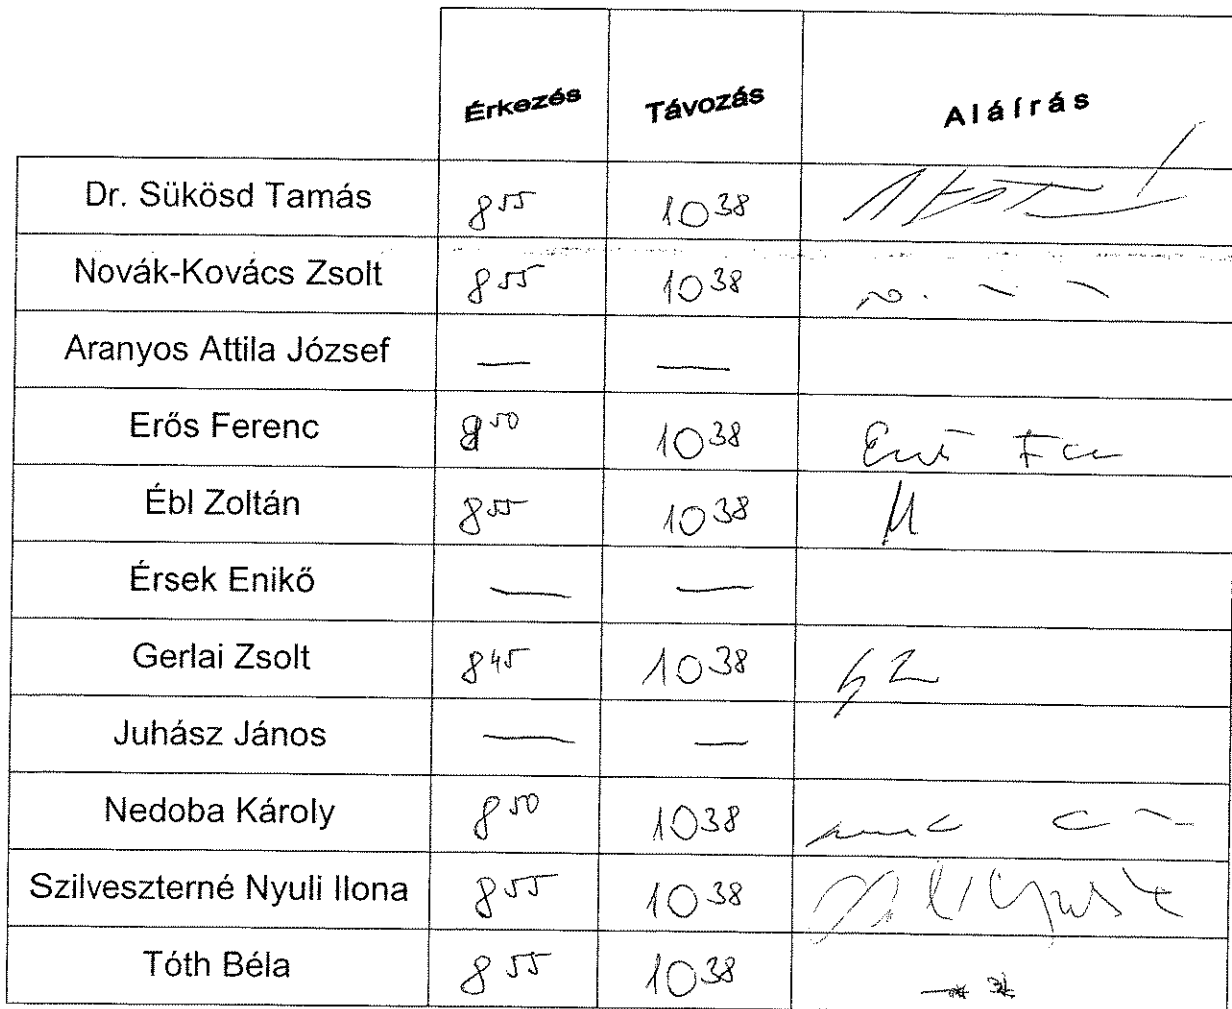 Érkezés Távozás Aláírás
Dr. Sükösd Tamás 8⁵⁵ 10³⁸
Novák-Kovács Zsolt 8⁵⁵ 10³⁸
Aranyos Attila József — —
Erős Ferenc 8⁵⁰ 10³⁸
Ébl Zoltán 8⁵⁵ 10³⁸
Érsek Enikő — —
Gerlai Zsolt 8⁴⁵ 10³⁸
Juhász János — —
Nedoba Károly 8⁵⁰ 10³⁸
Szilveszterné Nyuli Ilona 8⁵⁵ 10³⁸
Tóth Béla 8⁵⁵ 10³⁸